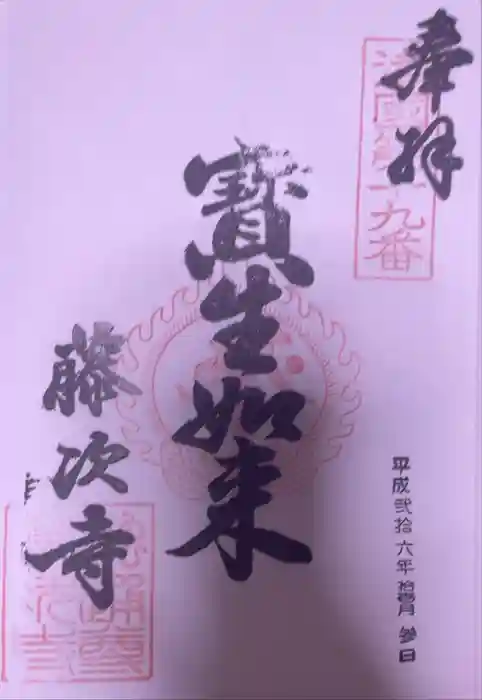 奉拝
九番
平成弐拾六年拾壹月参日
寶生如来
藤次寺